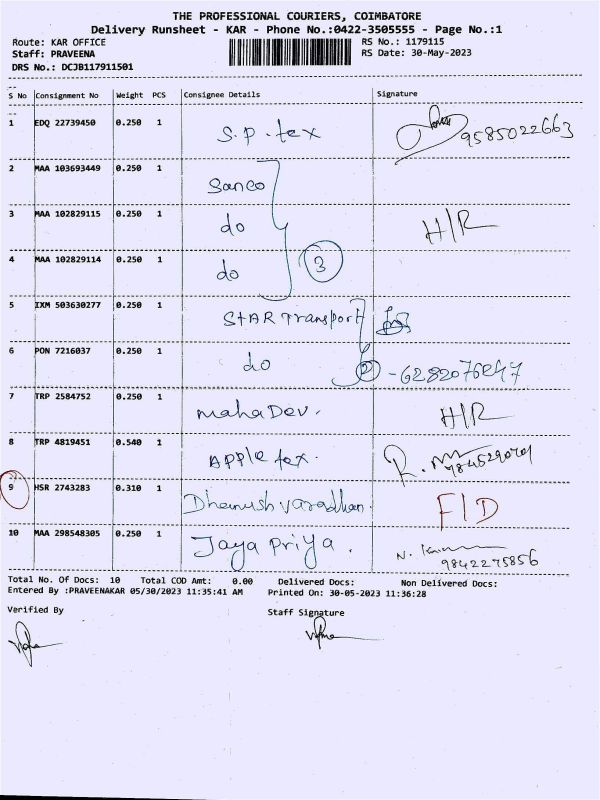 THE PROFESSIONAL COURIERS, COIMBATORE
Delivery Runsheet - KAR - Phone No.:0422-3505555 - Page No.:1
Route: KAR OFFICE RS No.: 1179115
Staff: PRAVEENA RS Date: 30-May-2023
DRS No.: DCJB117911501
S No Consignment No Weight PCS Consignee Details Signature
1 EDQ 22739450 0.250 1 S.p. tex 9585022663
2 MAA 103693449 0.250 1 Sanco
3 MAA 102829115 0.250 1 do H/R
4 MAA 102829114 0.250 1 do 3
5 IXM 503630277 0.250 1 STAR Transport
6 PON 7216037 0.250 1 do 2 -6282076247
7 TRP 2584752 0.250 1 mahaDev. H/R
8 TRP 4819451 0.540 1 Apple tex.
9 HSR 2743283 0.310 1 Dhanush varadhan. F/D
10 MAA 298548305 0.250 1 Jaya priya. 9842275856
Total No. Of Docs: 10 Total COD Amt: 0.00 Delivered Docs: Non Delivered Docs:
Entered By :PRAVEENAKAR 05/30/2023 11:35:41 AM Printed On: 30-05-2023 11:36:28
Verified By Staff Signature